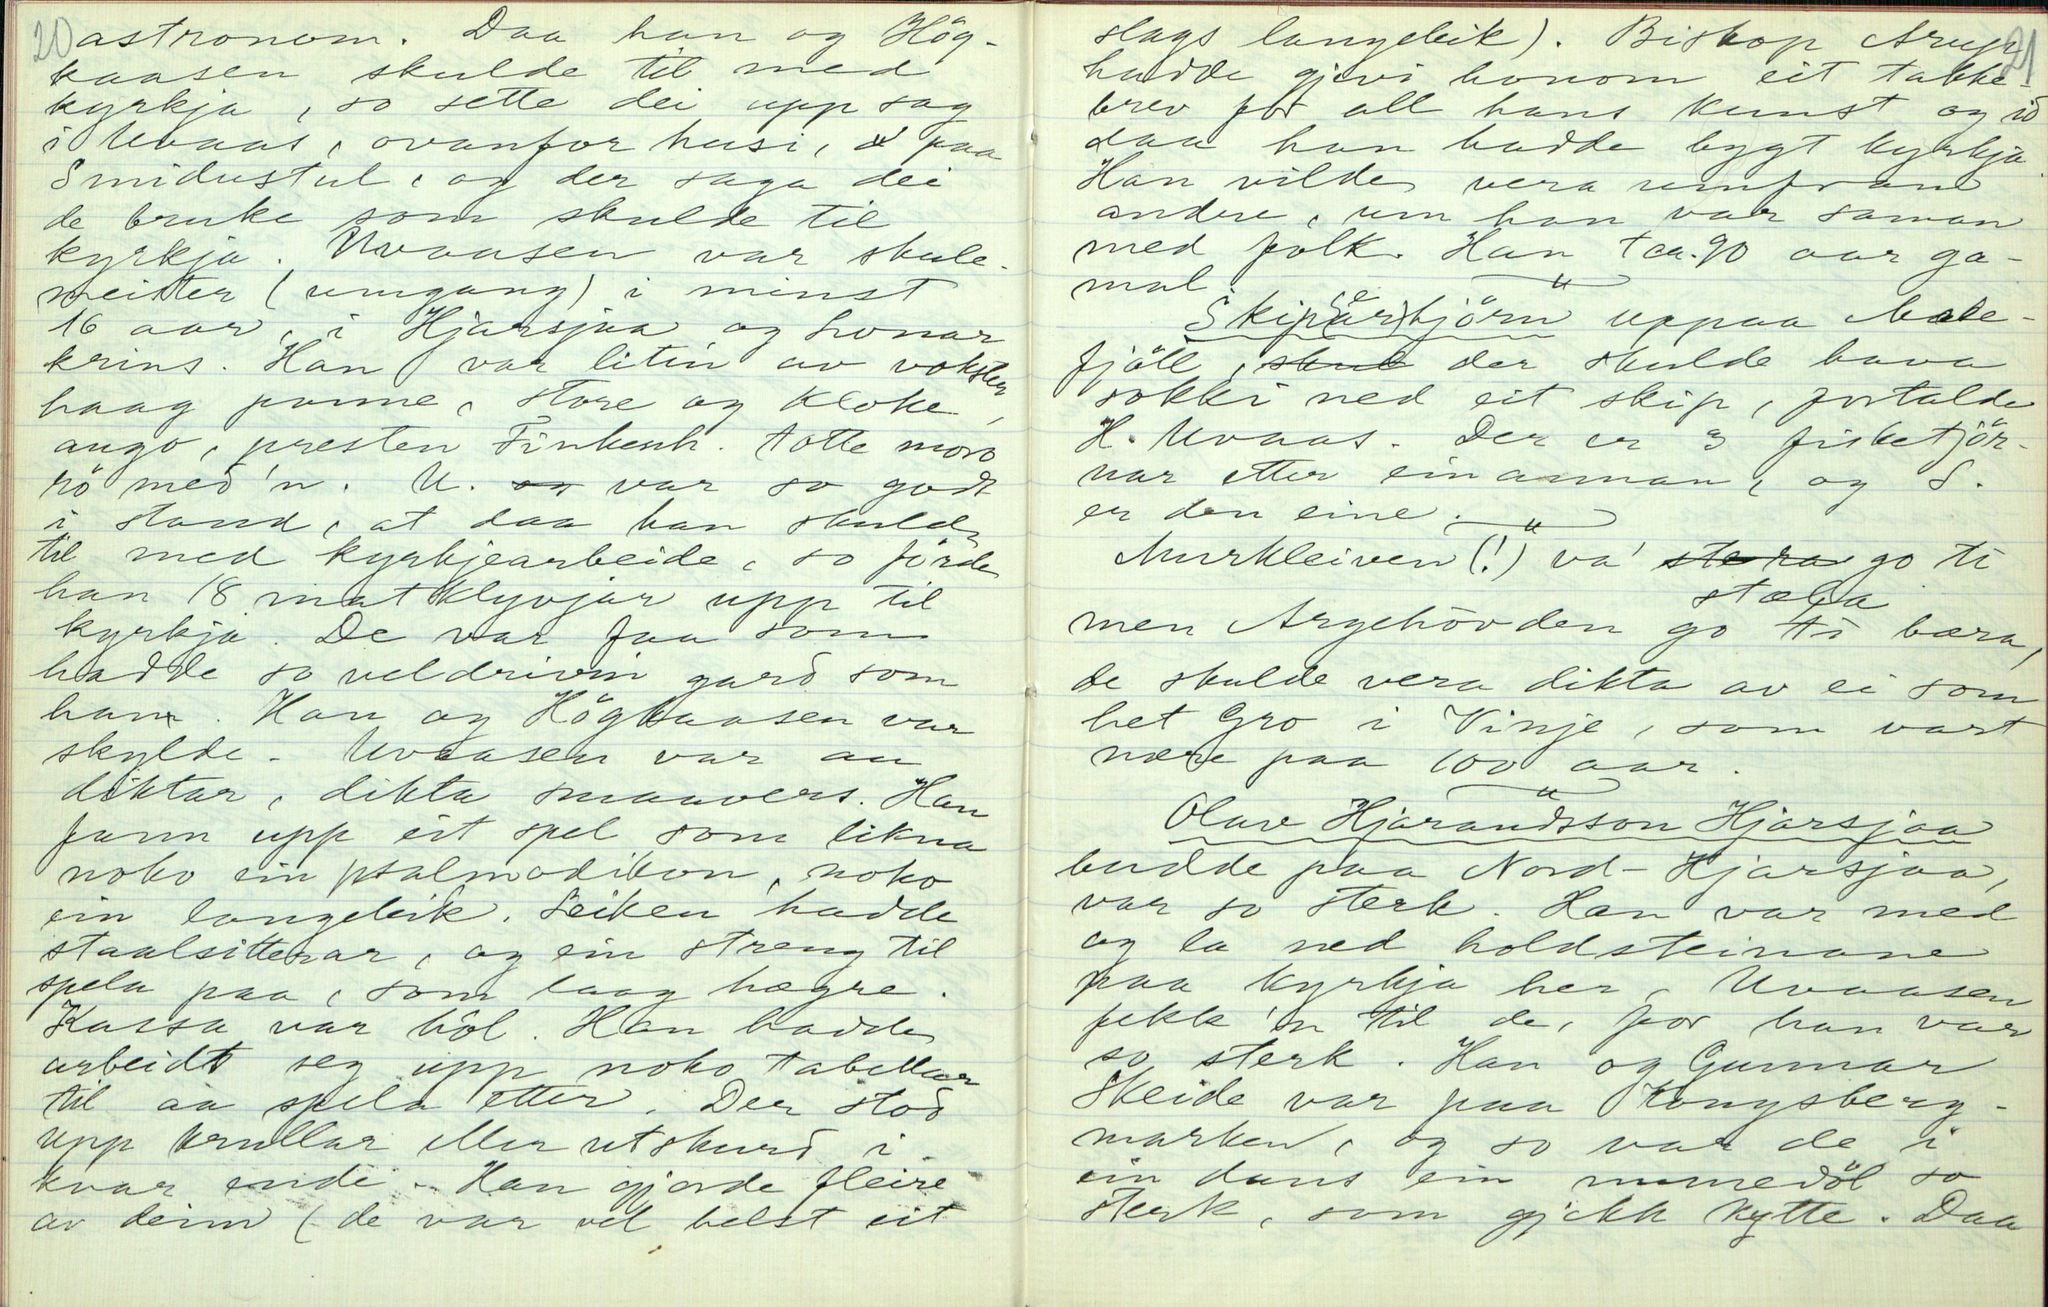 20 astronom. Daa han og Hög-
kaasen skulde til med
kyrkja, so sette dei upp sag
i Uvaas, ovanfor husi, paa
Smidustul, og der saga dei
de bruke som skulde til
kyrkja. Uvaasen var skule-
meister (umgang) i minst
16 aar, i Hjarsjaa og Lonar
krins. Han var litin av vokster,
haag panne, store og kloke
augo, presten Finkenh. totte moro
rö med 'n. U. var so godt
i stand, at daa han skulde
til med kyrkjearbeide, so förde
han 18 matklyvjar upp til
kyrkja. De var faa som
hadde so veldrivin gard som
han. Han og Högkaasen var
skylde. Uvaasen var au
diktar, dikta smaavers. Han
fann upp eit spel som likna
noko ein psalmodikon, noko
ein langeleik. Leiken hadde
staalsittrar, og ein streng til
spela paa, som laag högre.
Kassa var hol. Han hadde
arbeidt seg upp noko tabellar
til aa spela etter. Der stod
upp krullar eller utskurd i
kvar ende. Han gjorde fleire
av deim (de var vel helst eit
21
slags langeleik). Biskop Arup
hadde gjevi honom eit takke-
brev for all hans kunst og id
daa han hadde bygt kyrkja.
Han vilde vera umfram
andre, um han var saman
med folk. Han † ca. 90 aar ga-
mal.
Skip(ar)björn uppaa Male-
fjöll, skul der skulde hava
sokki ned eit skip, fortalde
H. Uvaas. Der er 3 fisketjör-
nar etter einannan, og S.
er den eine.
Murkleiven (!) va' stora go ti
stæla
men Argehovden go ti bæra,
de skulde vera dikta av ei som
het Gro i Vinje, som vart
nære paa 100 aar.
Olav Hjarandsson Hjarsjaa
budde paa Nord-Hjarsjaa,
var so sterk. Han var med
og la ned holdsteinane
paa kyrkja her, Uvaasen
fekk 'n til de, for han var
so sterk. Han og Gunnar
Skeide var paa Kongsberg-
marken, og so var de i
ein dans ein numedöl so
sterk, som gjekk kytte. Daa